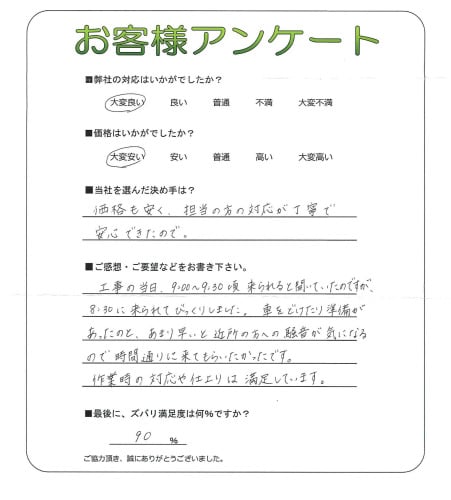 お客様アンケート
■弊社の対応はいかがでしたか?
大変良い 良い 普通 不満 大変不満
■価格はいかがでしたか?
大変安い 安い 普通 高い 大変高い
■当社を選んだ決め手は?
価格も安く、担当の方の対応が丁寧で
安心できたので。
■ご感想・ご要望などをお書き下さい。
工事の当日、9:00~9:30頃 来られると聞いていたのですが、
8:30に来られてびっくりしました。車をどけたり準備が
あったのと、あまり早いと近所の方への騒音が気になる
ので時間通りに来てもらいたかったです。
作業時の対応や仕上りは満足しています。
■最後に、ズバリ満足度は何%ですか?
90 %
ご協力頂き、誠にありがとうございました。